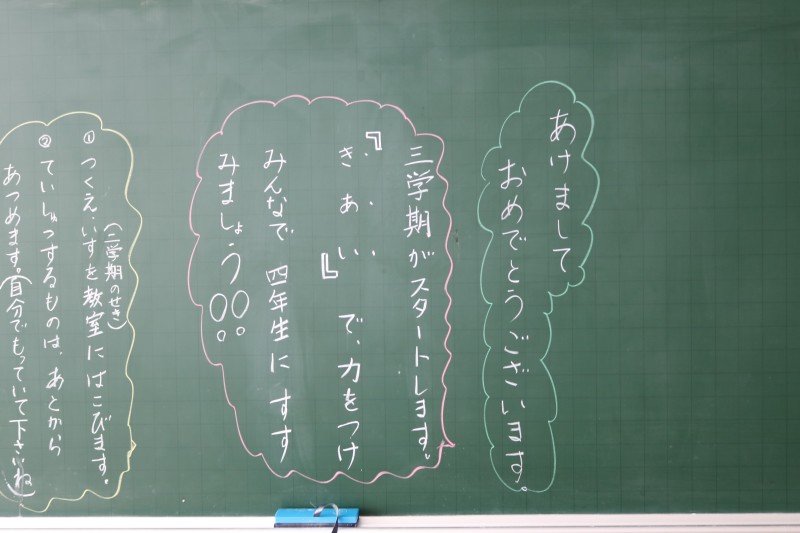 あけまして
おめでとうございます。
三学期がスタートします。
『きあい』で、力をつけ
みんなで 四年生に すす
みましょう!!
① つくえ、いすを教室にはこびます。
(二学期のせき)
② ていしゅつするものは、あとから
あつめます。(自分でもっていて下さいね)